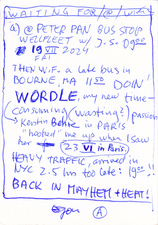 WAITING FOR/@/with
a) @ PETER PAN BUS STOP
WELLFLEET w/ J-S. 0900
19 VII 2024
FRI
THEN W.F. a late bus in
BOURNE, MA 11 50 DOIN'
WORDLE, my new time-
consuming (wasting?) passion
Kerstin Behre in PARIS
"hooked" me up when I saw
her 23 VI in PARIS
HEAVY TRAFFIC, arrived in
NYC 2.5 hrs too late: 19
BACK IN MAYHEM + HEAT!
A